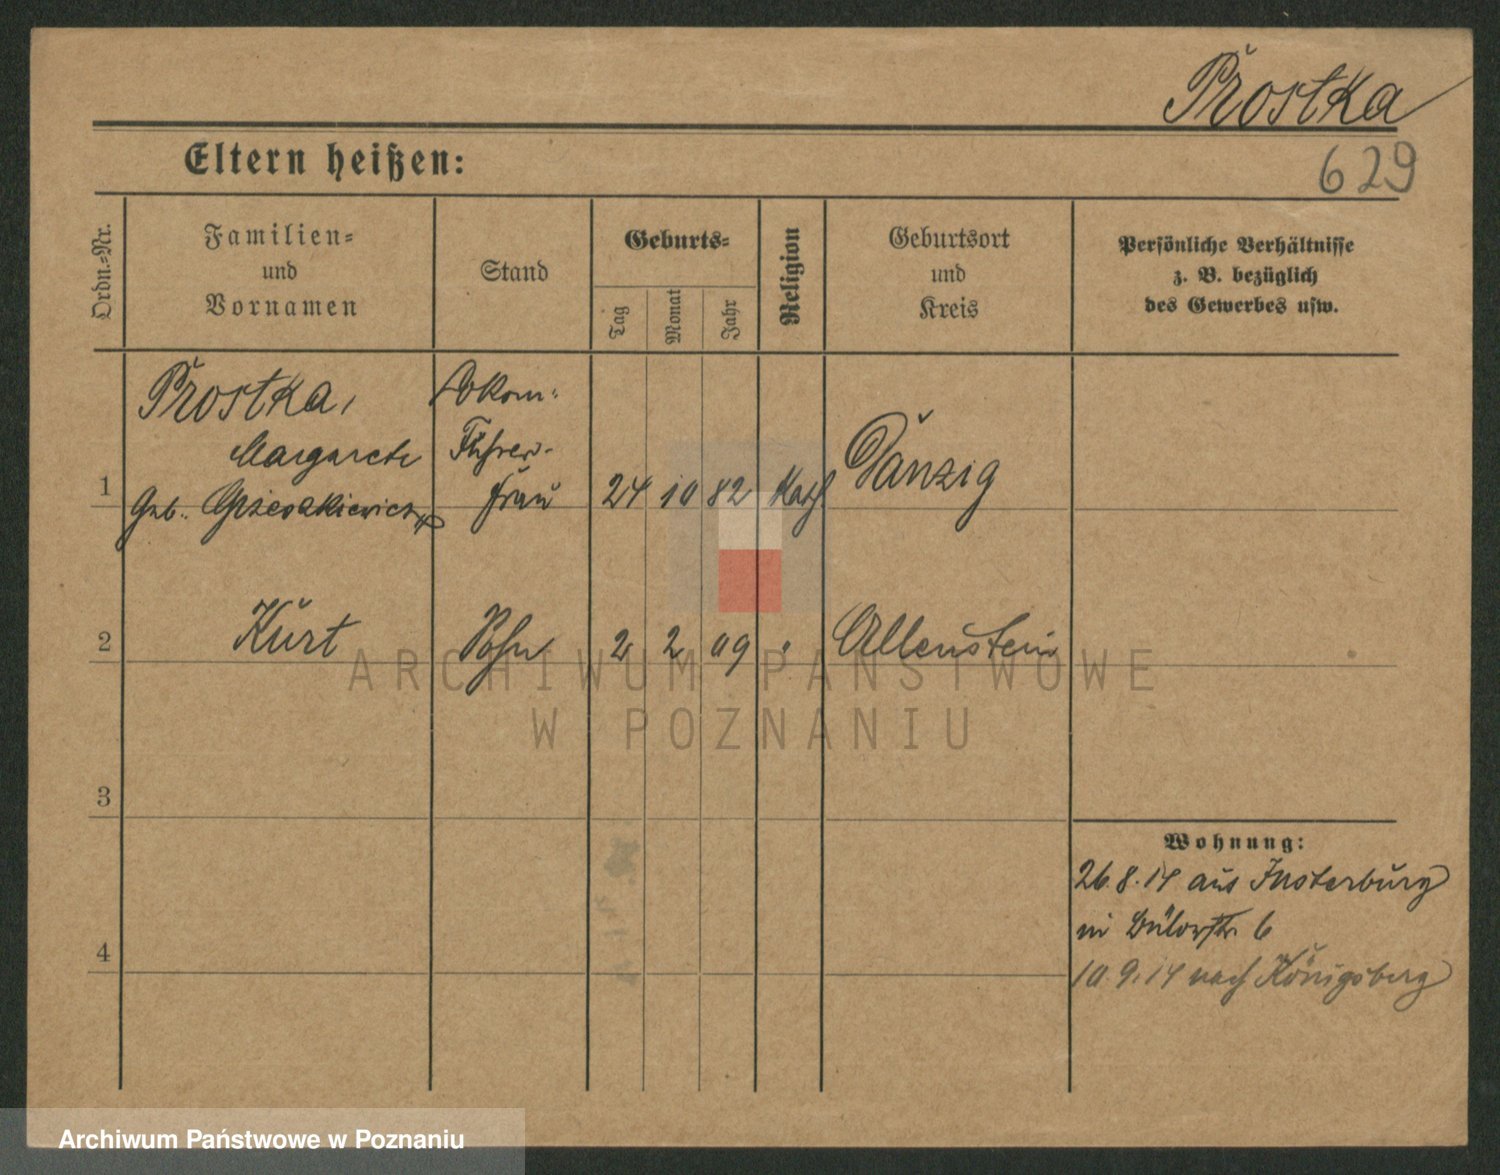 Prostka
629
Eltern heißen:
Ordn.-Nr.
Familien-
und
Vornamen
Stand
Geburts-
Tag
Monat
Jahr
Religion
Geburtsort
und
Kreis
Persönliche Verhältnisse
z. B. bezüglich
des Gewerbes usw.
1
Prostka,
Margarete
Geb.
Lokom-
Führer-
frau
24 10 82
Kath
Danzig
2
Kurt
Sohn
2 2 09
Allenstein
3
4
Wohnung:
26.8.14 aus Insterburg
in Bülowstr. 6
10.9.14 nach Königsberg
ARCHIWUM PAŃSTWOWE
W POZNANIU
Archiwum Państwowe w Poznaniu